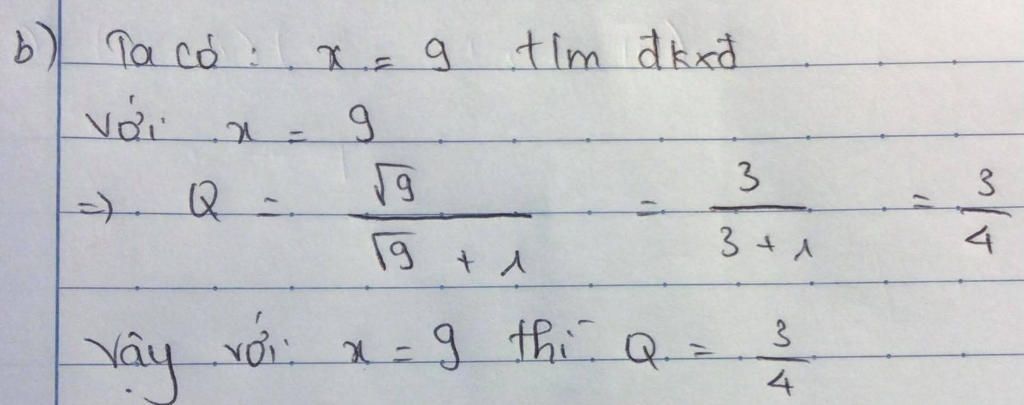 b) Ta có : x = 9 tlm đkxđ
Với x = 9
=> Q = √9 / (√9 + 1) = 3 / (3 + 1) = 3/4
Vậy với x = 9 thì Q = 3/4